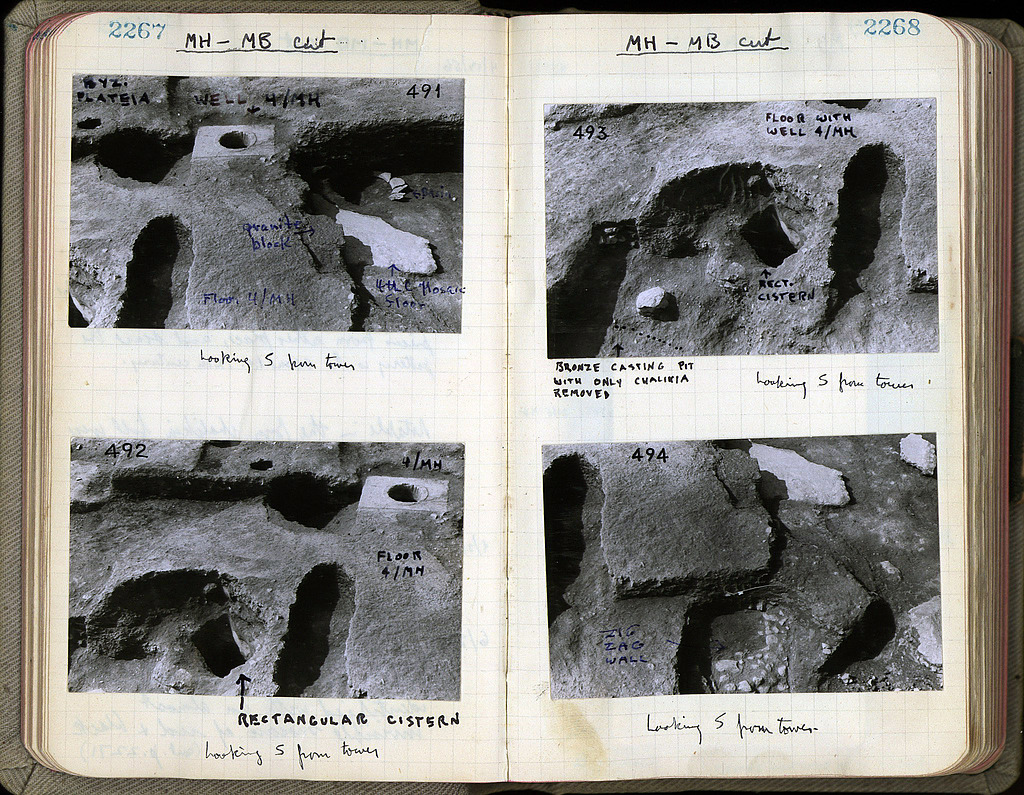 2267
MH - MB cut
BYZ.
PLATEIA
WELL 4/MH
491
granite
block
Floor 4/MH
4th C Mosaic
floor
Looking S from tower
492
4/MH
FLOOR
4/MH
RECTANGULAR CISTERN
Looking S from tower
2268
MH - MB cut
493
FLOOR WITH
WELL 4/MH
RECT.
CISTERN
BRONZE CASTING PIT
WITH ONLY CHALIKIA
REMOVED
Looking S from tower
494
ZIG
ZAG
WALL
Looking S from tower